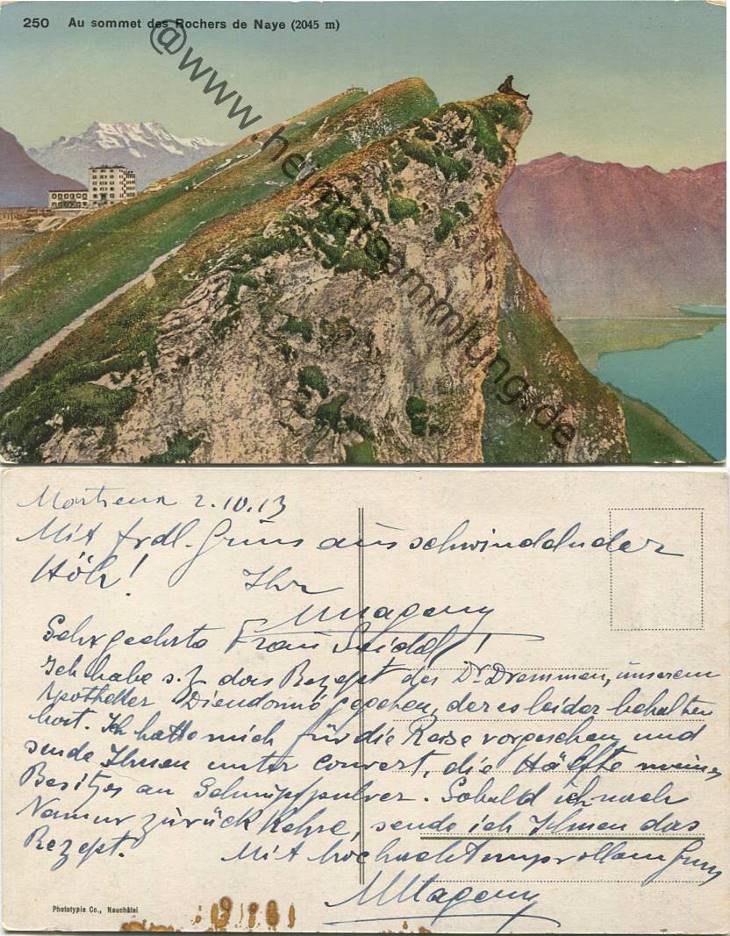 250 Au sommet des Rochers de Naye (2045 m)
@www.heimatsammlung.de
2.10.13
Mit frdl. Gruss aus schwindelnder
Höh! Ihr
Sehr geehrte Frau Seidel!
Ich habe s. Z. das Rezept des Dr. Dremmen, unserem
Apotheker Diendonné gegeben, der es leider behalten
hat. Ich hatte mich für die Reise vorgesehen und
sende Ihnen unter Couvert, die Hälfte meines
Besitzes an Schnupfpulver. Sobald ich nach
Namur zurück kehre, sende ich Ihnen das
Rezept. Mit hochachtungsvollem Gruss
Phototypie Co., Neuchâtel